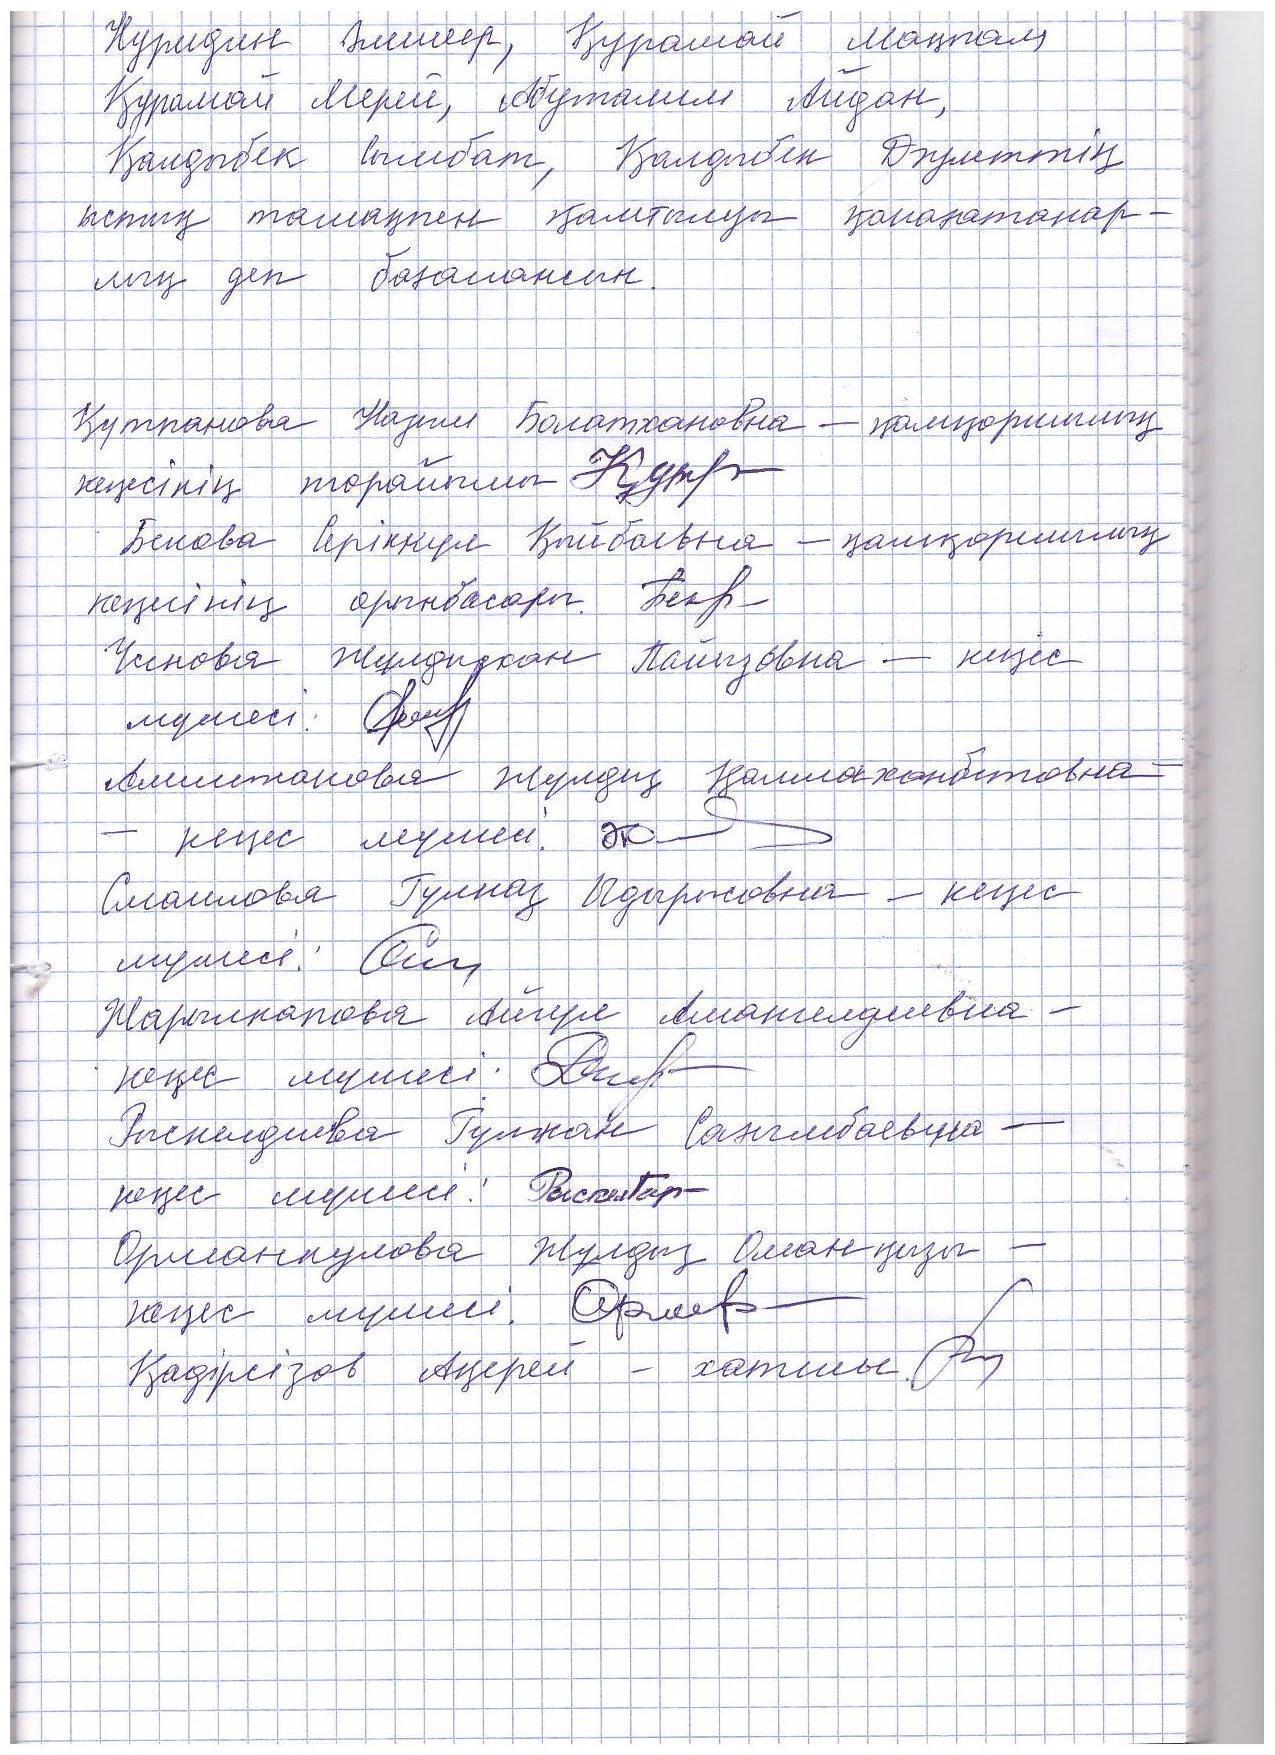 Нуридин Элшеер, Құрамай Мақпал,
Құрамай Мерей, Абуталим Айдан,
Қалдыбек Сымбат, Қалдыбек Дәулеттің
ыстық тамақпен қамтылуы қанағатанар-
лық деп бағалансын.
Құтпанова Назым Болатхановна – қамқоршылық
кеңесінің төрайымы
Бекова Серіккүл Қыйбаевна – қамқоршылық
кеңесінің орынбасары.
Усенова Жулдызхан Пайызовна – кеңес
мүшесі:
Алимжанова Жулдыз Қалмаханбетовна –
– кеңес мүшесі:
Смаилова Гулназ Ыдырысовна – кеңес
мүшесі:
Жарылкапова Айгул Амангелдиевна –
кеңес мүшесі:
Рыскелдиева Гулжан Сағымбаевна –
кеңес мүшесі:
Орманкулова Жулдыз Оманқызы –
кеңес мүшесі.
Қадірсізов Ақерей – хатшы.